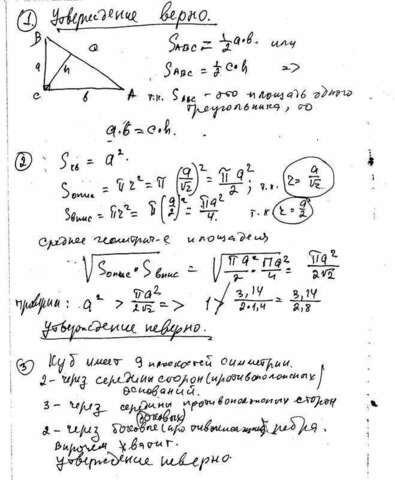 ① Утверждение верно.
B
a
h
c
C
b
A
S_ABC = 1/2 a·b. или
S_ABC = 1/2 c·h ⇒
т.к. S_ABC - это площадь одного
треугольника, то
a·b = c·h.
② S_кв = a².
S_опис = πr² = π (a/√2)² = πa²/2; т.к. r = a/√2
S_впис = πr² = π(a/2)² = πa²/4. т.к r = a/2
среднее геометрич-е площадей
√(S_опис · S_впис) = √(πa²/2 · πa²/4) = πa²/(2√2)
проверим: a² > πa²/(2√2) ⇒ 1 > 3,14/(2·1,4) = 3,14/2,8
Утверждение неверно.
③ Куб имеет 9 плоскостей симметрии.
2 - через середины сторон (противоположных)
оснований.
3 - через середины противоположных сторон
(боковых)
2 - через боковые (противолежащие) ребра.
впрочем хватит.
Утверждение неверно.